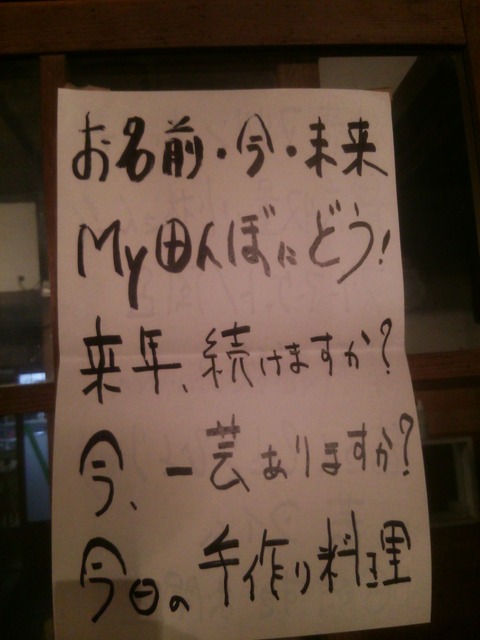 お名前・今・未来
My田んぼにどう!
来年、続けますか?
今、一芸ありますか?
今日の手作り料理